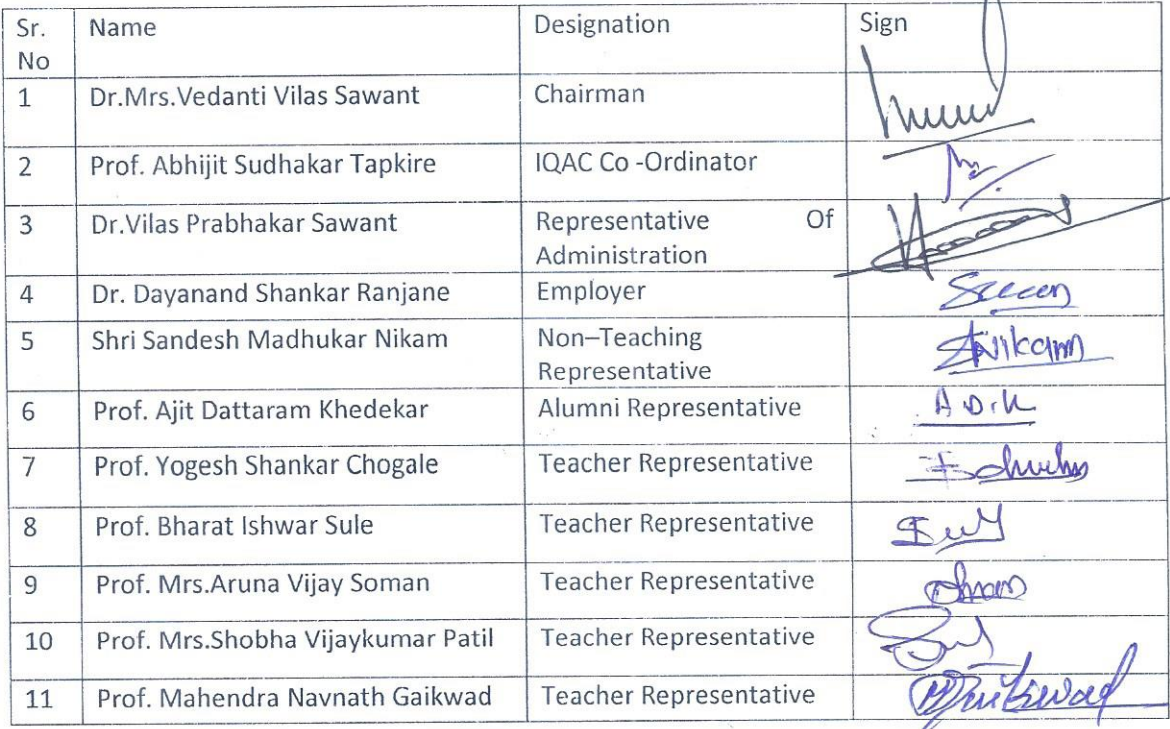 Sr. No Name Designation Sign
1 Dr.Mrs.Vedanti Vilas Sawant Chairman
2 Prof. Abhijit Sudhakar Tapkire IQAC Co -Ordinator
3 Dr.Vilas Prabhakar Sawant Representative Of
Administration
4 Dr. Dayanand Shankar Ranjane Employer
5 Shri Sandesh Madhukar Nikam Non–Teaching
Representative SNikam
6 Prof. Ajit Dattaram Khedekar Alumni Representative A D.K
7 Prof. Yogesh Shankar Chogale Teacher Representative
8 Prof. Bharat Ishwar Sule Teacher Representative
9 Prof. Mrs.Aruna Vijay Soman Teacher Representative
10 Prof. Mrs.Shobha Vijaykumar Patil Teacher Representative
11 Prof. Mahendra Navnath Gaikwad Teacher Representative